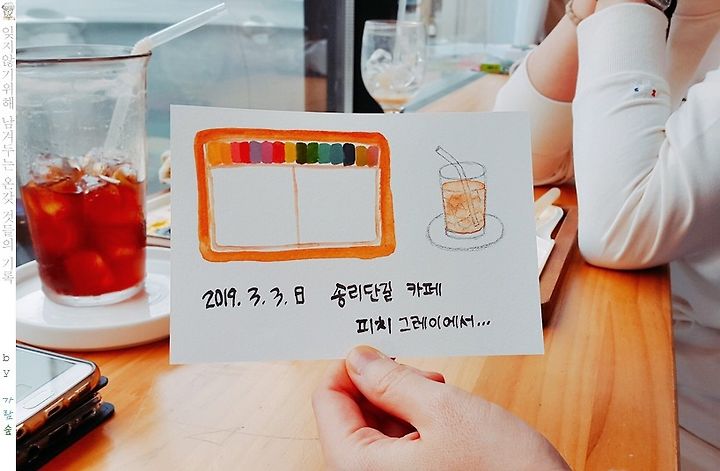 잊지 않기 위해 남겨두는 온갖 것들의 기록
by 가람숲
2019. 3. 3. 日 송리단길 카페
피치 그레이에서...